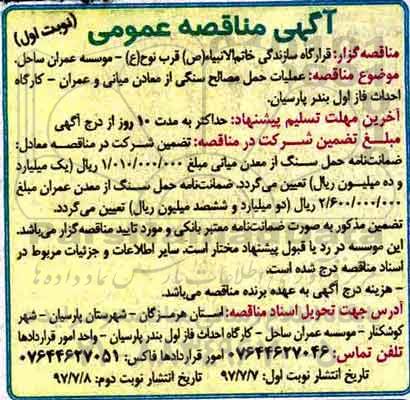 آگهی مناقصه عمومی (نوبت اول)
مناقصه‌گزار: قرارگاه سازندگی خاتم‌الانبیاء(ص) قرب نوح(ع) - موسسه عمران ساحل.
موضوع مناقصه: عملیات حمل مصالح سنگی از معادن میانی و عمران - کارگاه
احداث فاز اول بندر پارسیان.
آخرین مهلت تسلیم پیشنهاد: حداکثر به مدت ۱۰ روز از درج آگهی
مبلغ تضمین شرکت در مناقصه: تضمین شرکت در مناقصه معادل:
ضمانت‌نامه حمل سنگ از معدن میانی مبلغ ۱/۰۱۰/۰۰۰/۰۰۰ ریال (یک میلیارد
و ده میلیون ریال) تعیین می‌گردد. ضمانت‌نامه حمل سنگ از معدن عمران مبلغ
۲/۶۰۰/۰۰۰/۰۰۰ ریال (دو میلیارد و ششصد میلیون ریال) تعیین می‌گردد.
تضمین مذکور به صورت ضمانت‌نامه معتبر بانکی و مورد تایید مناقصه‌گزار می‌باشد.
این موسسه در رد یا قبول پیشنهاد مختار است. سایر اطلاعات و جزئیات مربوط در
اسناد مناقصه درج شده است.
- هزینه درج آگهی به عهده برنده مناقصه می‌باشد.
آدرس جهت تحویل اسناد مناقصه: استان هرمزگان - شهرستان پارسیان - شهر
کوشکنار - موسسه عمران ساحل - کارگاه احداث فاز اول بندر پارسیان - واحد امور قراردادها
تلفن تماس: ۰۷۶۴۴۶۲۷۰۴۶ امور قراردادها فاکس: ۰۷۶۴۴۶۲۷۰۵۱
تاریخ انتشار نوبت اول: ۹۷/۷/۷ تاریخ انتشار نوبت دوم: ۹۷/۷/۸